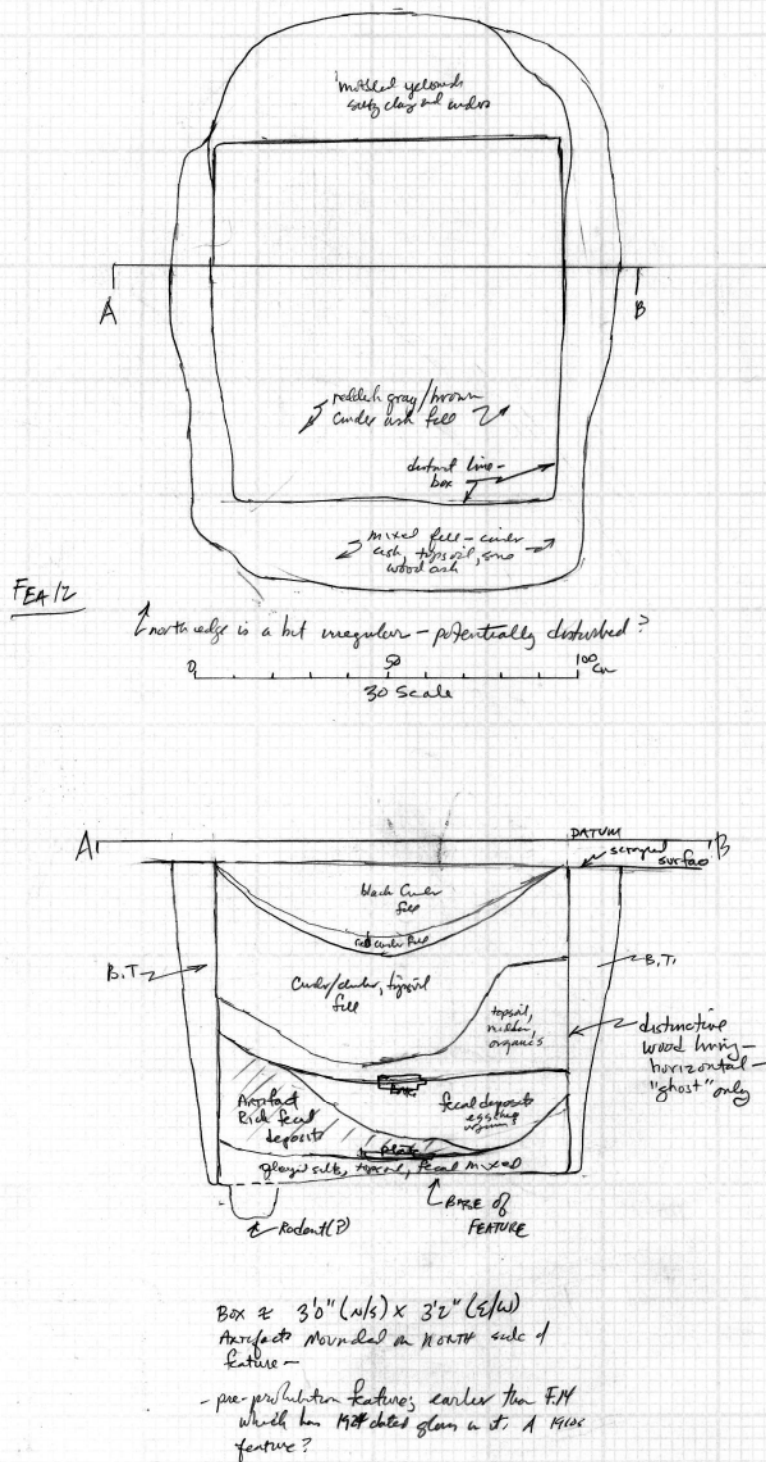 mottled yellowish
silty clay and cinders
A
B
reddish gray/brown
cinder ash fill
distinct line-
box
mixed fill - cinder
ash, topsoil, some
wood ash
FEA 12
north edge is a bit irregular - potentially disturbed?
0
50
100
cm
30 Scale
A
DATUM
B
scraped
surface
black cinder
fill
red cinder fill
B.T.
B.T.
Cinder/clinker, topsoil
fill
topsoil,
midden,
organics
distinctive
wood lining -
horizontal -
"ghost" only
Artifact
Rich fecal
deposits
fecal deposits
eggshell
organics
plate
gleyed silts, topsoil, fecal mixed
BASE OF
FEATURE
Rodent(?)
Box ≠ 3'0" (N/S) x 3'2" (E/W)
Artifacts Mounded on NORTH side of
feature -
- pre-prohibition feature; earlier than F.14
which has 1924 dated glass in it. A 1910s
feature?